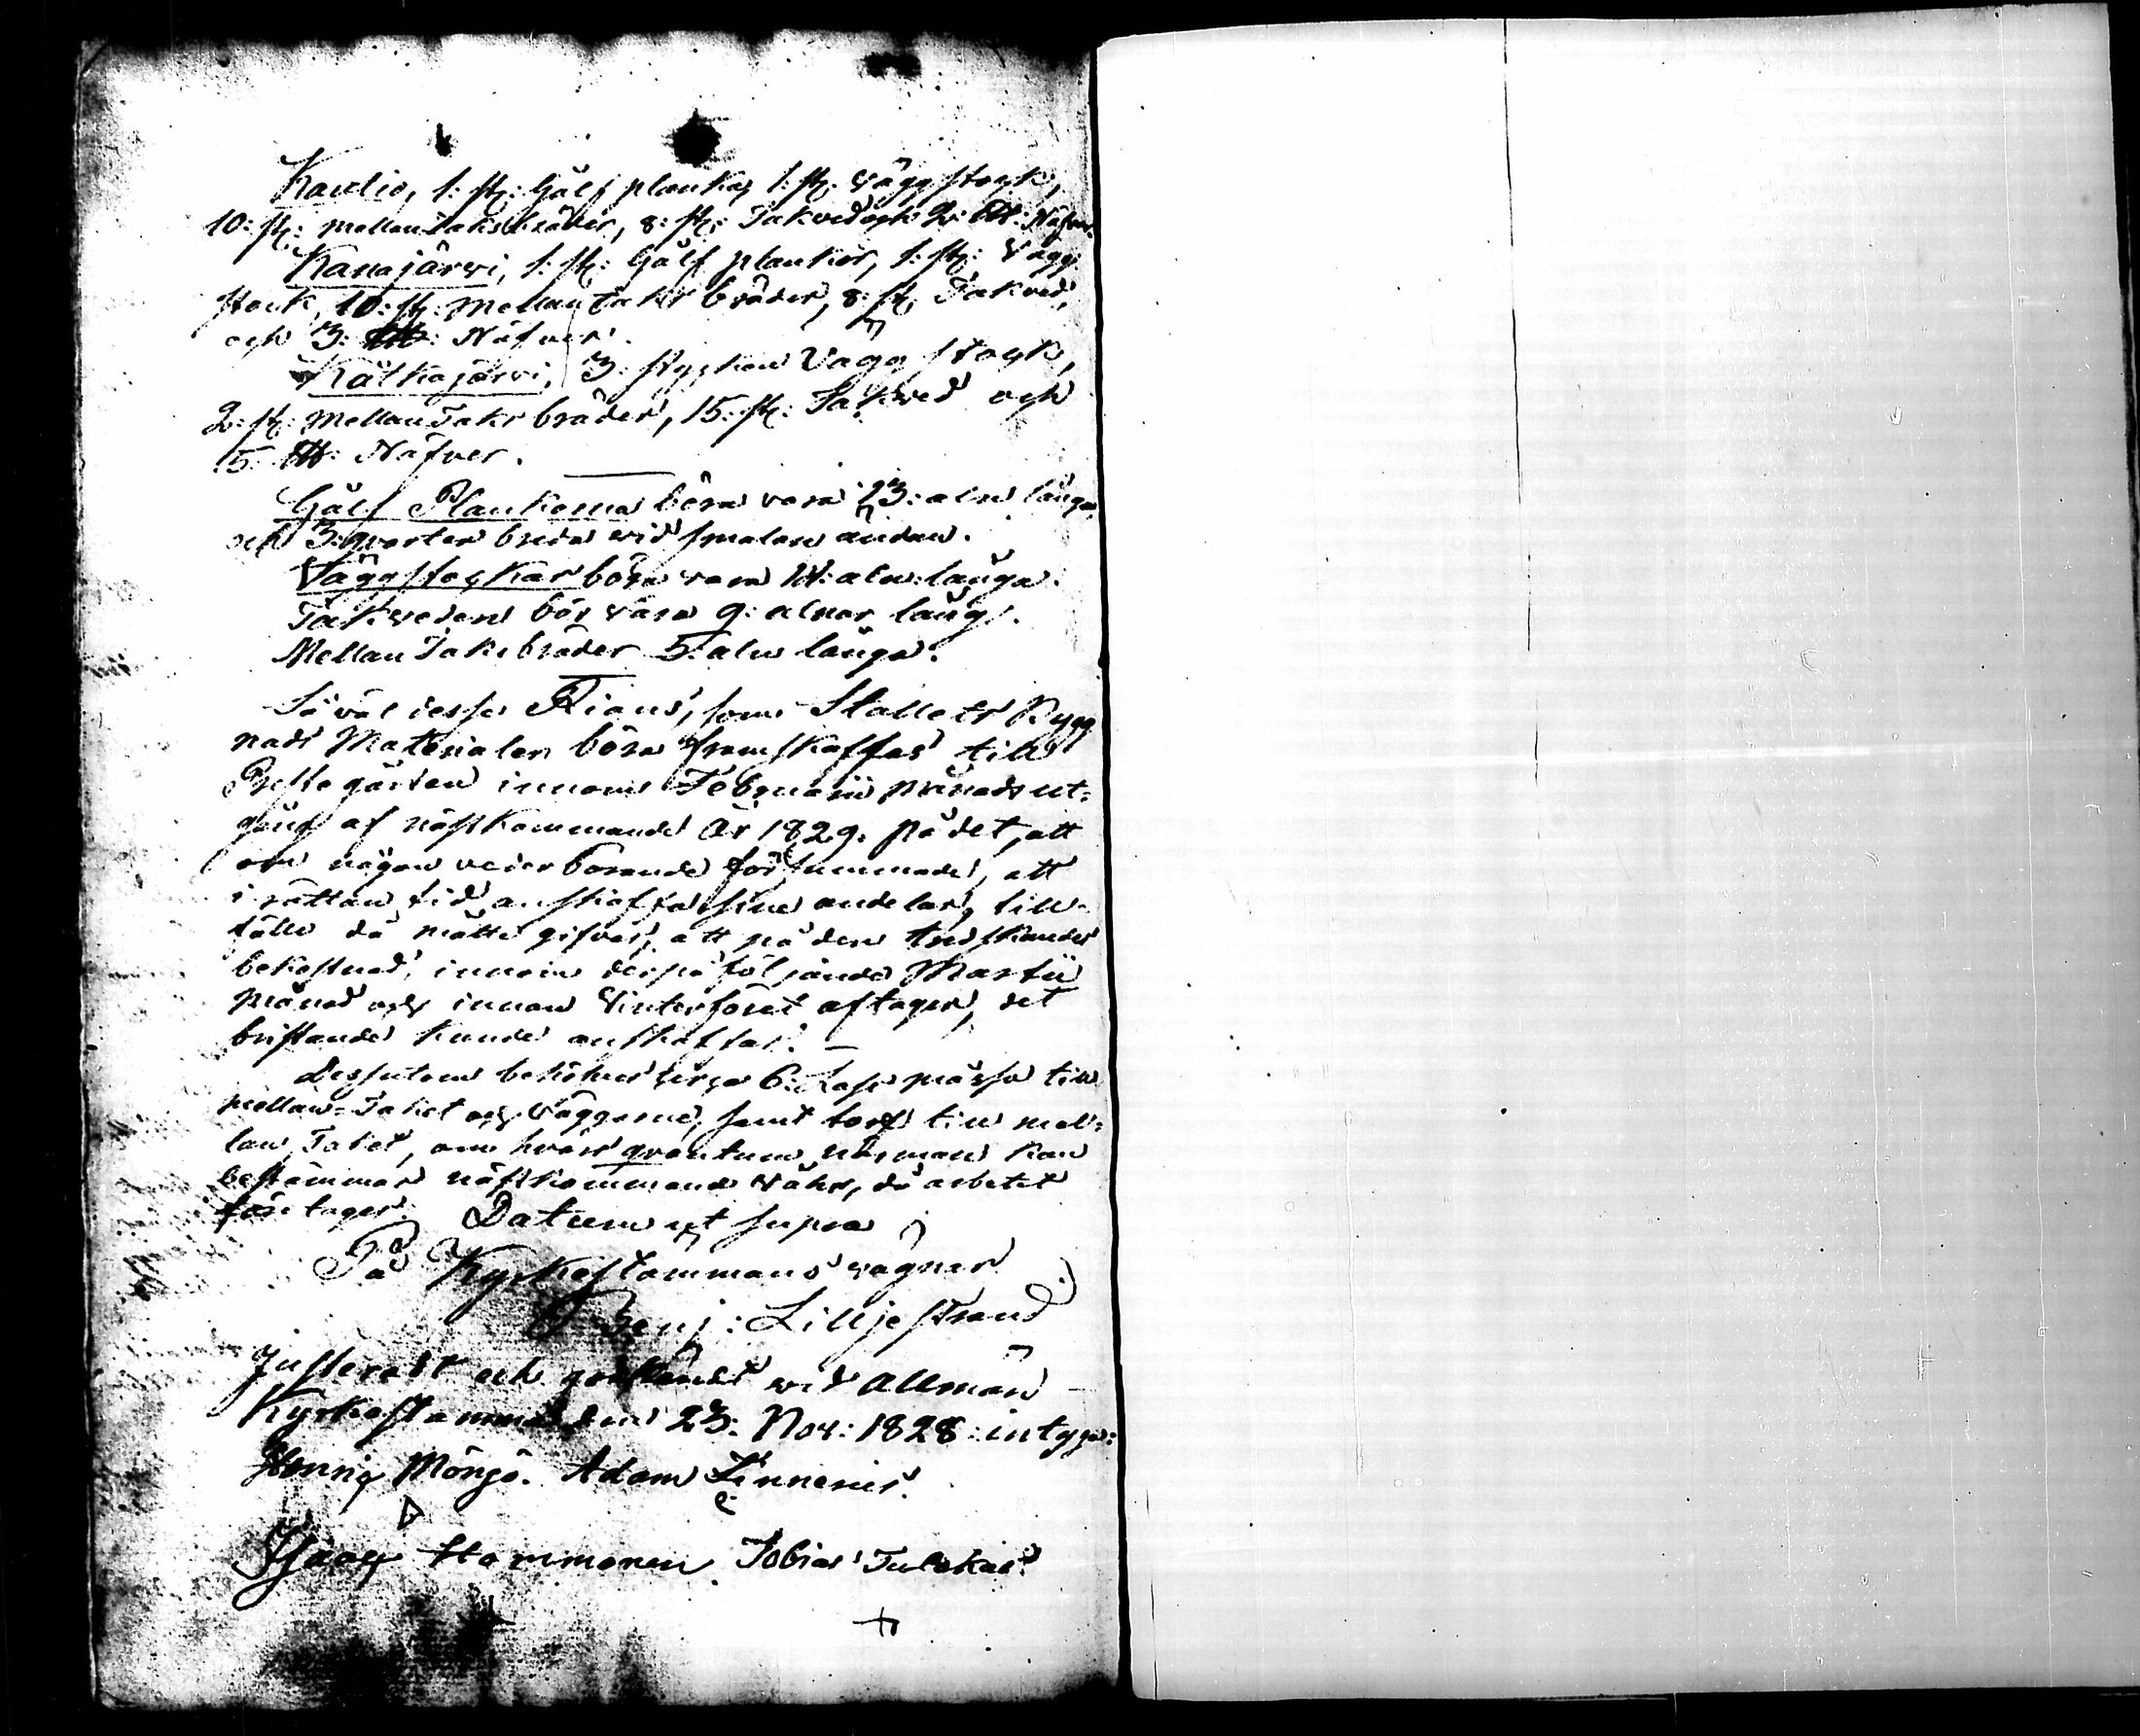 Kaulio, 1: st: Gålf plankor, 1: st: Väggstock,
10: st: mellan Taks bräder, 8: st: Takved och 2: LU: Näfver.
Kanajärvi, 1: st: Gålf plankor, 1: st: Vägg
stock, 10: st: mellan taks bräder, 8: st: Takved,
och 3: LU: Näfver.
Kätkajärvi, 3: stycken Väggstock,
2: st: Mellan Taks bräder, 15: st: Takved och
5: LU: Näfver.
Gålf Plankorna böra vara 13: aln långa,
och 3: qvarter breda vid smalare ändan.
Väggstockar böra vara 14: aln: långa.
Takveden bör vara 9: alnar lång.
Mellan Taks bräder 5: aln långa.
Så väl dessa Rians, som Stallets Bygg
nads Materialer böra framskaffas till
Prestegården innom Februarii månads ut-
gång af nästkommande År 1829. på det, att
om någon vederborande försummade, att
i rättan tid anskaffa sine andelar, till-
fälle då måtte gifvas, att på den tredskandes
bekostnad, innom derpåföljande Martii
månad och innan Vinterföret aftager, det
bristande kunde anskaffas. –
Dessutom behöfves circa 6: Lass måssa till
mellan-Taket och Väggarne, samt torf till mel-
lan Taket, om hvars quantum närmare kan
bestämmas nästkommande Våhr, då arbetet
företages. Datum ut supra
På Kyrkostämmans vägnar
Benj: Lilljestrand
Justeradt och godkändt vid allmän
Kyrkostämma den 23: Nov: 1828: intyga:
Henric Mörjö. Adam Linnerius.
Isaac Hommonen. Tobias Tulokas.